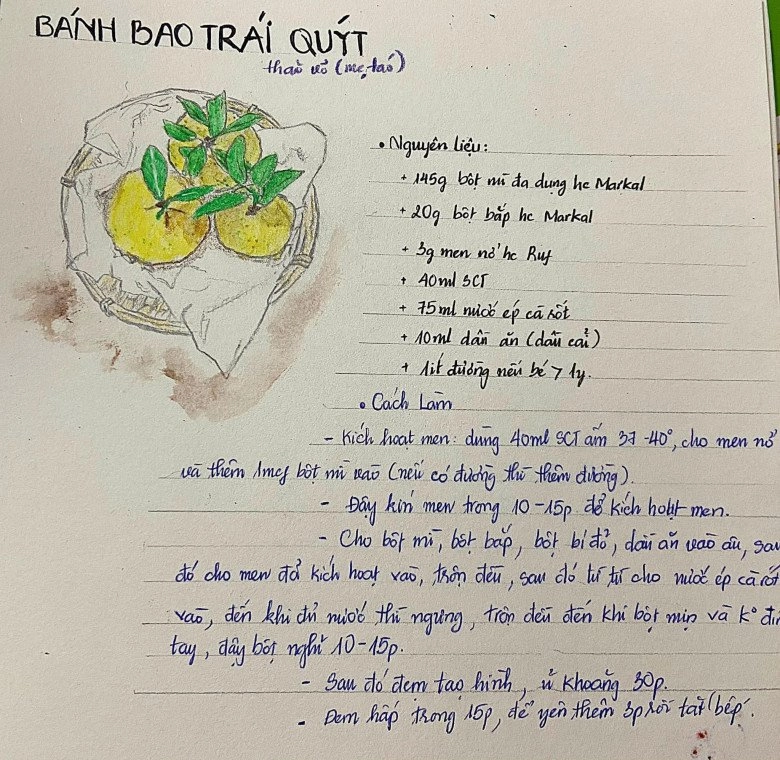 BÁNH BAO TRÁI QUÝT
thaỏ vỏ (mẹ táo)
• Nguyên liệu:
+ 145g bột mì đa dụng hc Markal
+ 20g bột bắp hc Markal
+ 3g men nở hc Ruf
+ 40ml SCT
+ 75ml nước ép cà rốt
+ 10ml dầu ăn (dầu cải)
+ 1ít đường nếu bé > 1y.
• Cách Làm
- Kích hoạt men: dùng 40ml SCT ấm 37-40°, cho men nở
và thêm 1mcf bột mì vào (nếu có đường thì thêm đường).
- Đậy kín men trong 10-15p để kích hoạt men.
- Cho bột mì, bột bắp, bột bí đỏ, dầu ăn vào âu, sau
đó cho men đã kích hoạt vào, trộn đều, sau đó từ từ cho nước ép cà rốt
vào, đến khi đủ nước thì ngừng, trộn đều đến khi bột mịn và k° dín
tay, đậy bột nghỉ 10-15p.
- Sau đó đem tạo hình, ủ khoảng 30p.
- Đem hấp trong 15p, để yên thêm 3p rồi tắt bếp.